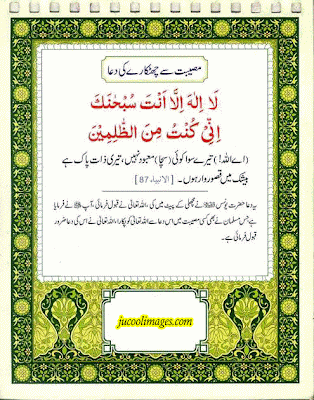 مصیبت سے چھٹکارے کی دعا
لَا اِلٰهَ اِلَّا اَنْتَ سُبْحٰنَكَ
اِنِّیْ كُنْتُ مِنَ الظّٰلِمِیْنَ
(اے اللہ!) تیرے سوا کوئی (سچا) معبود نہیں، تیری ذات پاک ہے
بیشک میں قصور وار ہوں۔ [الانبیاء 87]
یہ دعا حضرت یونس نے مچھلی کے پیٹ میں کی، اللہ تعالیٰ نے قبول فرمائی، آپ ﷺ نے فرمایا
ہے جس مسلمان نے بھی کسی مصیبت میں اس دعا سے اللہ تعالیٰ کو پکارا، اللہ تعالیٰ نے اس کی دعا ضرور
قبول فرمائی ہے۔
jucoolimages.com